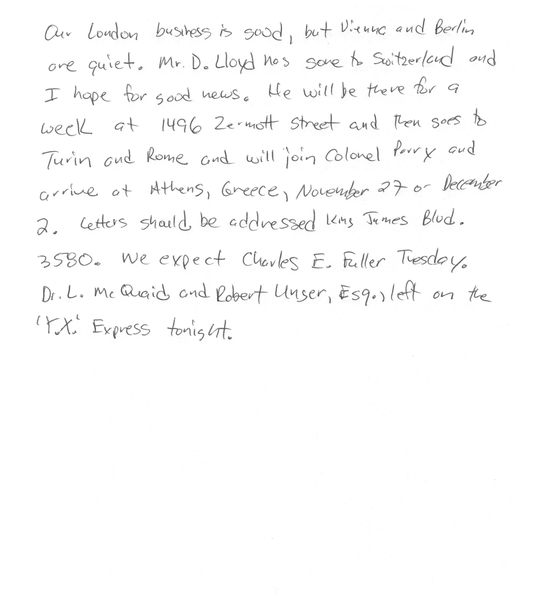 Our London business is good, but Vienna and Berlin
are quiet. Mr. D. Lloyd has gone to Switzerland and
I hope for good news. He will be there for a
week at 1496 Zermott Street and then goes to
Turin and Rome and will join Colonel Parry and
arrive at Athens, Greece, November 27 or December
2. Letters should be addressed King James Blvd.
3580. We expect Charles E. Fuller Tuesday.
Dr. L. McQuaid and Robert Unger, Esq., left on the
'Y.X.' Express tonight.